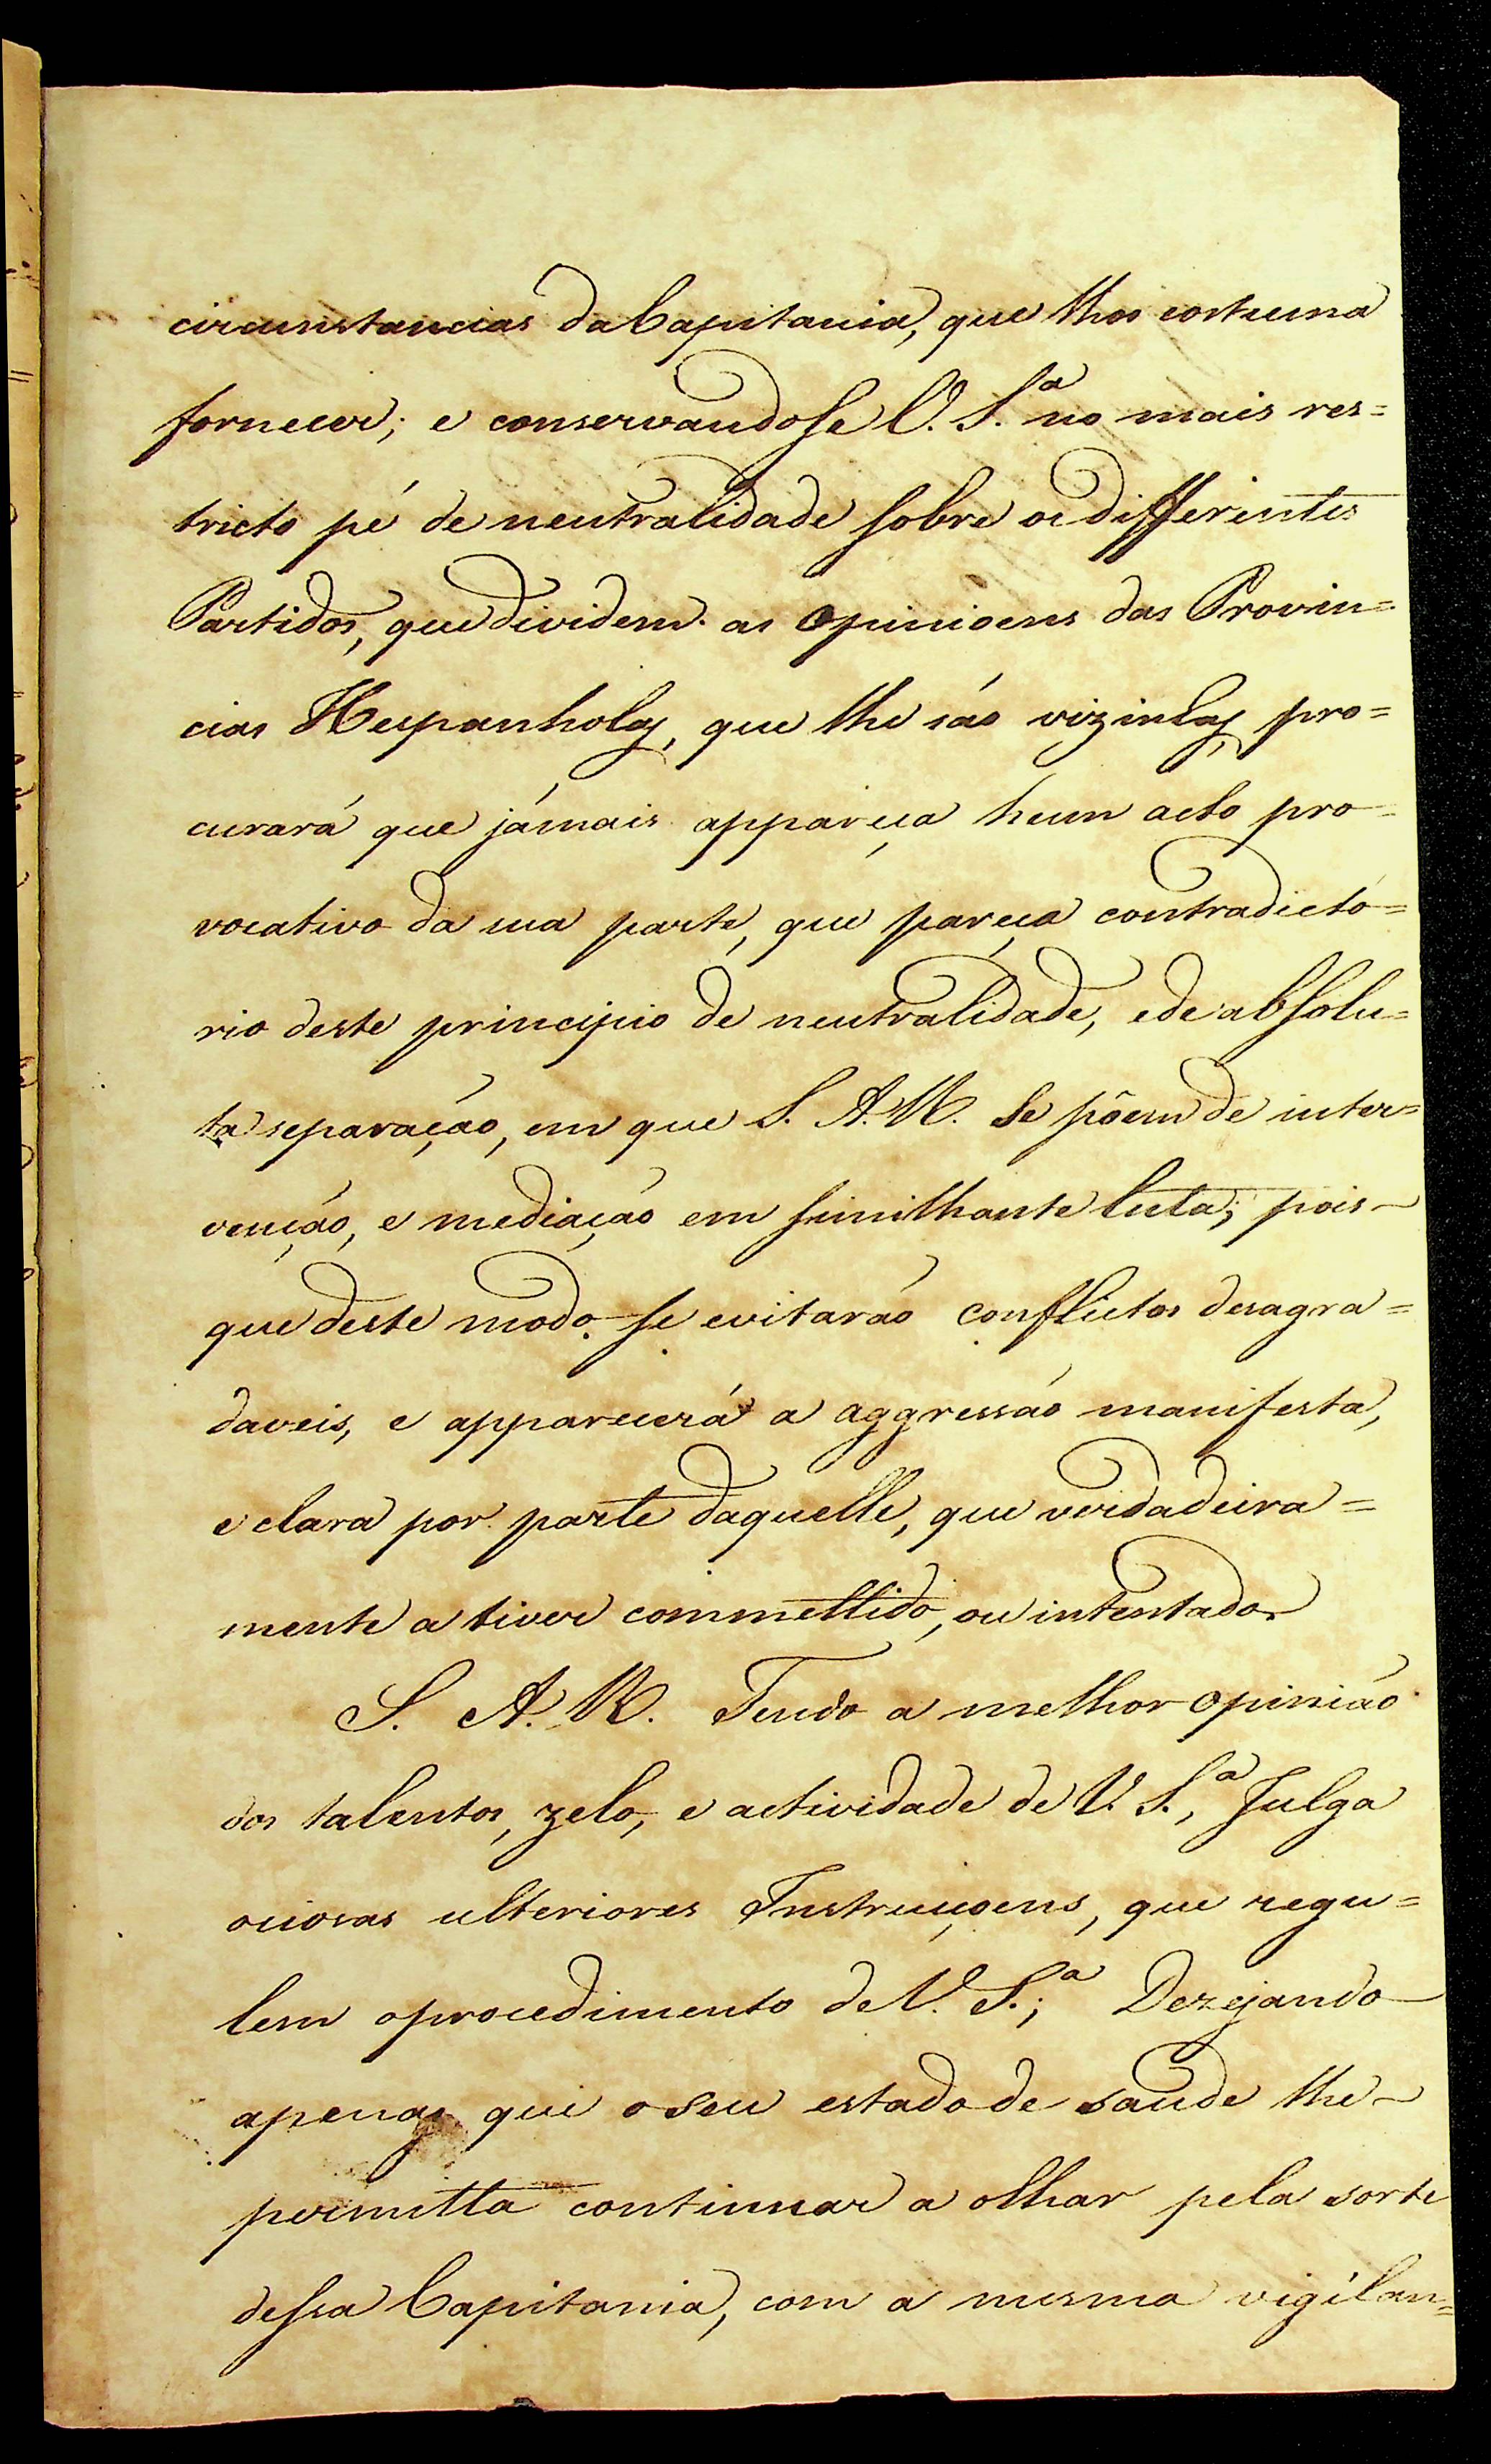 circunstancias da Capitania, que lhos costuma
fornecer; e conservandose V. S.ª no mais res=
tricto pé de neutralidade sobre os differentes
Partidos, que dividem as Opinioens das Provin=
cias Hespanholas, que lhe são vizinhas, pro=
curará que jámais appareça hum acto pro=
vocativo da sua parte, que pareça contradicto=
rio deste principio de neutralidade, e de absolu=
ta separação, em que S. A. R. Se põem de inter=
venção, e mediação em similhante luta; pois
que deste modo se evitarão conflictos desagra=
daveis, e apparecerá a aggressão manifesta,
e clara por parte daquelle, que verdadeira=
mente a tiver commettido, ou intentado.
S. A. R. Tendo a melhor opinião
dos talentos, zelo, e actividade de V. S.ª, Julga
ociosas ulteriores Instrucçoens, que regu=
lem o procedimento de V. S.ª; Dezejando
apenas que o Seu estado de saude lhe
permitta continuar a olhar pela sorte
dessa Capitania, com a mesma vigilan=